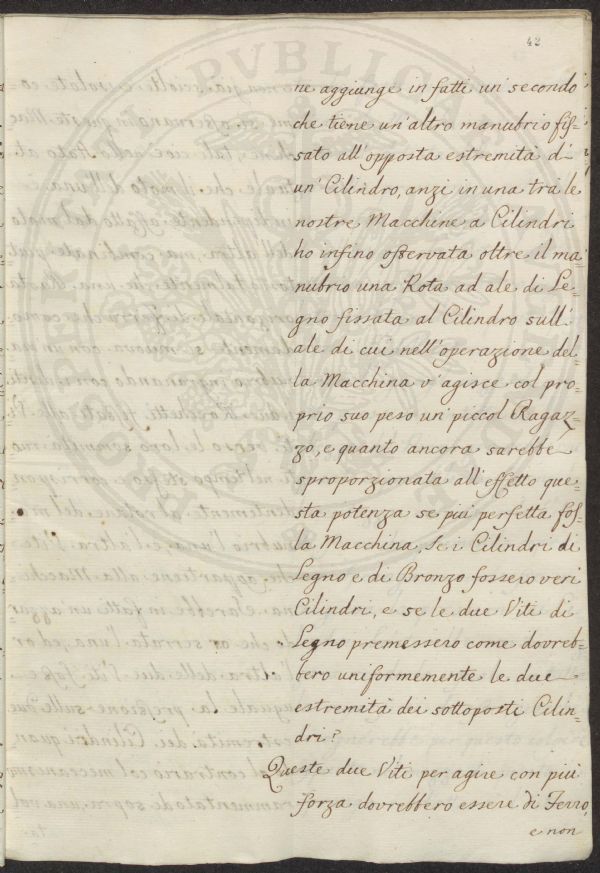 42
ne aggiunge in fatti un' secondo
che tiene un'altro manubrio fis=
sato all'opposta estremità d'
un' Cilindro, anzi in una tra le
nostre Macchine a Cilindri
ho infino osservata oltre il ma=
nubrio una Rota ad ale di Le=
gno fissata al Cilindro sull'
ale di cui nell'operazione del=
la Macchina v'agisce col pro=
prio suo peso un' piccol Ragaz=
zo, e quanto ancora sarebbe
sproporzionata all'effetto que=
sta potenza se più perfetta fos=
la Macchina, se i Cilindri di
Legno e di Bronzo fossero veri
Cilindri, e se le due Viti di
Legno premessero come dovreb=
bero uniformemente le due
estremità dei sottoposti Cilin=
dri?
Queste due Viti per agire con più
forza dovrebbero essere di Ferro,
e non
PROSPERITATI PUBLICAE